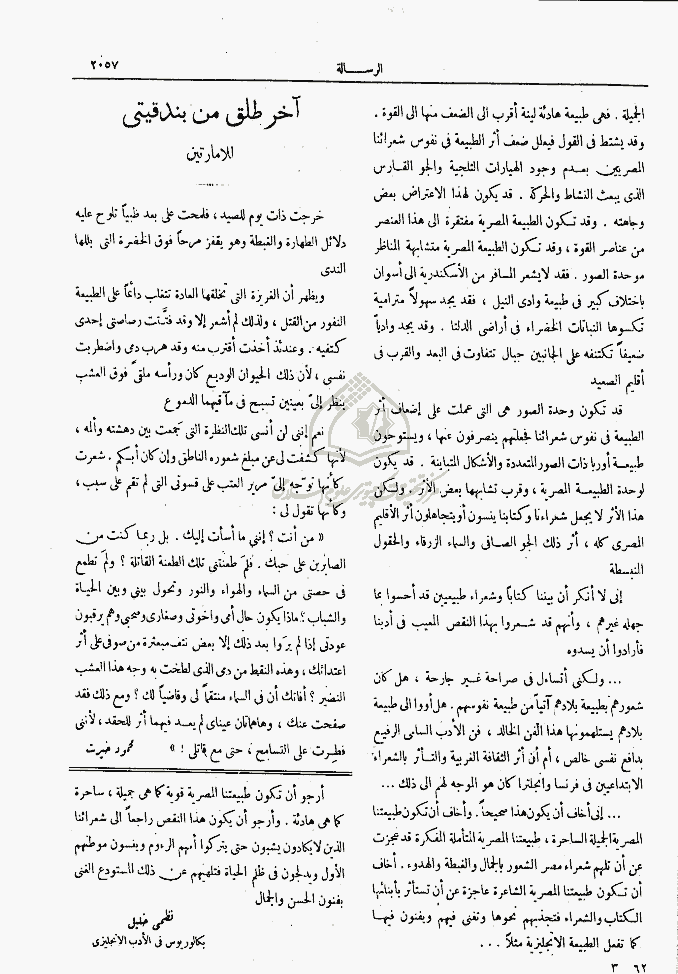 ٢٠٥٧
الرسالة
الجميلة . فهى طبيعة هادئة لينة أقرب الى الضعف منها الى القوة .
وقد يشتط فى القول فيعلل ضعف أثر الطبيعة فى نفوس شعرائنا
المصريين بعدم وجود الهيارات الثلجية والجو القارس
الذى يبعث النشاط والحركة . قد يكون لهذا الاعتراض بعض
وجاهته . وقد تكون الطبيعة المصرية مفتقرة الى هذا العنصر
من عناصر القوة ، وقد تكون الطبيعة المصرية متشابهة المناظر
موحدة الصور . فقد لا يشعر المسافر من الأسكندرية الى أسوان
باختلاف كبير فى طبيعة وادى النيل ، فقد يجد سهولاً مترامية
تكسوها النباتات الخضراء فى أراضى الدلتا . وقد يجد وادياً
ضعيفاً تكتنفه على الجانبين جبال تتفاوت فى البعد والقرب فى
أقليم الصعيد
قد تكون وحدة الصور هى التى عملت على إضعاف أثر
الطبيعة فى نفوس شعرائنا فجعلتهم ينصرفون عنها ، ويستوحون
طبيعة أوربا ذات الصور المتعددة والأشكال المتباينة . قد يكون
لوحدة الطبيعة المصرية ، وقرب تشابهها بعض الأثر . ولكن
هذا الأثر لا يجعل شعراءنا وكتابنا ينسون أو يتجاهلون أثر الأقليم
المصرى كله ، أثر ذلك الجو الصافى والسماء الزرقاء والحقول
المنبسطة
إنى لا أنكر أن بيننا كتاباً وشعراء طبيعيين قد أحسوا بما
جهله غيرهم ، وأنهم قد شعروا بهذا النقص المعيب فى أدبنا
فأرادوا أن يسدوه
... ولكنى أتساءل فى صراحة غير جارحة ، هل كان
شعورهم بطبيعة بلادهم آتياً من طبيعة نفوسهم . هل أووا الى طبيعة
بلادهم يستلهمونها هذا الفن الخالد ، فن الأدب السامى الرفيع
بدافع نفسى خالص ، أم أن أثر الثقافة الغربية والتأثر بالشعراء
الابتداعيين فى فرنسا وانجلترا كان هو الموجه لهم الى ذلك ...
... إنى أخاف أن يكون هذا صحيحاً . وأخاف أن تكون طبيعتنا
المصرية الجميلة الساحرة ، طبيعتنا المصرية المتأملة المفكرة قد عجزت
عن أن تلهم شعراء مصر الشعور بالجمال والغبطة والهدوء . أخاف
أن تكون طبيعتنا المصرية الشاعرة عاجزة عن أن تستأثر بأبنائها
الكتاب والشعراء فتجذبهم نحوها وتفنى فيهم ويفنون فيها
كما تفعل الطبيعة الانجليزية مثلاً ...
آخر طلق من بندقيتى
للامارتين
خرجت ذات يوم للصيد ، فلمحت على بعد ظبياً تلوح عليه
دلائل الطهارة والغبطة وهو يقفز مرحاً فوق الخضرة التى بللها
الندى
ويظهر أن الغريزة التى تخلقها العادة تتغلب دائماً على الطبيعة
النفور من القتل ، ولذلك لم أشعر إلا وقد فتَّتت رصاصتى إحدى
كتفيه . وعندئذ أخذت أقترب منه وقد هرب دمى واضطربت
نفسى ، لأن ذلك الحيوان الوديع كان ورأسه ملقىً فوق العشب
ينظر إلىّ بعينين تسبح فى مآقيهما الدموع
نعم إننى لن أنسى تلك النظرة التى جمعت بين دهشته وألمه ،
لأنها كشفت لى عن مبلغ شعوره الناطق وإن كان أبكم . شعرت
كأنها توجه إلىّ مرير العتب على قسوتى التى لم تقم على سبب ،
وكأنها تقول لى :
« من أنت ؟ إننى ما أسأت إليك . بل ربما كنت من
الصابرين على حبك . فلمَ طعنتنى تلك الطعنة القاتلة ؟ ولمَ تطمع
فى حصتى من السماء والهواء والنور وتحول بينى وبين الحياة
والشباب ؟ ماذا يكون حال أمى واخوتى وصغارى وصحبى وهم يرقبون
عودتى إذا لم يروا بعد ذلك إلا بعض نتف مبعثرة من صوفى على أثر
اعتدائك ، وهذه النقط من دمى الذى لطخت به وجه هذا العشب
النضير ؟ أفاتك أن فى السماء منتقماً لى وقاضياً لك ؟ ومع ذلك فقد
صفحت عنك ، وهاهاتان عيناى لم يعد فيهما أثر للحقد ، لأننى
فطرت على التسامح ، حتى مع قاتلى ! » محمود خيرت
أرجو أن تكون طبيعتنا المصرية قوية كما هى جميلة ، ساحرة
كما هى هادئة . وأرجو أن يكون هذا النقص راجعاً الى شعرائنا
الذين لا يكادون يشبون حتى يتركوا أمهم الرءوم وينسون موطنهم
الأول ويدلجون فى ظلم الحياة فتلهيهم عن ذلك المستودع الغنى
بفنون الحسن والجمال
نظمى خليل
بكالوريوس فى الأدب الانجليزى
٦٢ ٣